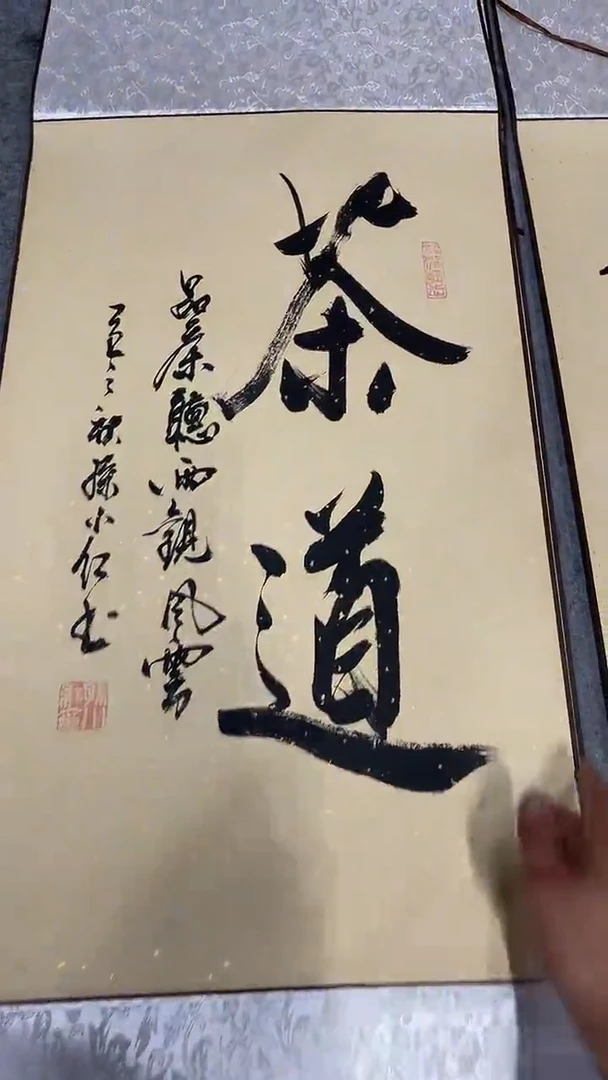 茶道
品茶聽雨觀風雲
之秋孫小仁书